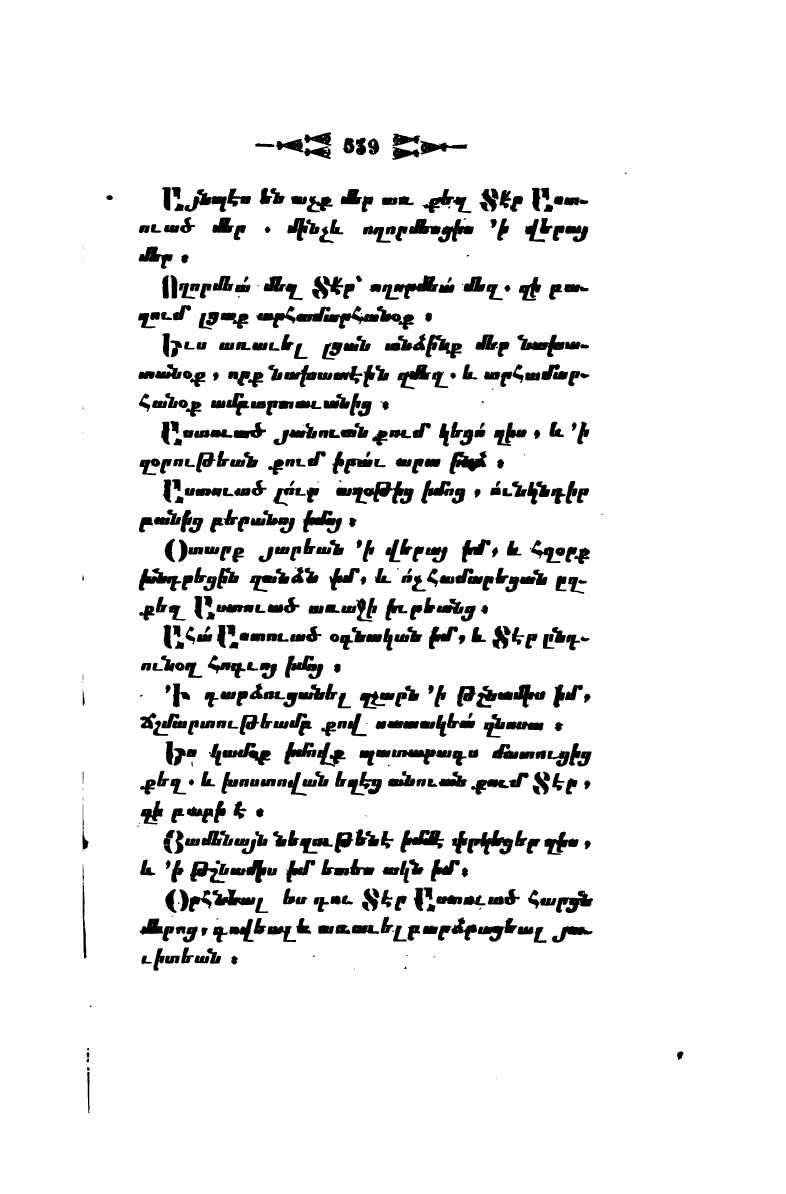 539
Այնպէս են աչք մեր առ քեզ Տէր Աստ-
ուած մեր . մինչև ողորմեսցիս ՚ի վերայ
մեր ։
Ողորմեա՛ մեզ Տէր՝ ողորմեա՛ մեզ . զի բա-
զում լցաք արհամարհանօք ։
Եւս առաւել լցան անձինք մեր նախա-
տանօք , որք նախատէին զմեզ . և արհամար-
հանօք ամբարտաւանից ։
Աստուած յանուան քում կեցո՛ զիս , և ՚ի
զօրութեան քում իրա՛ւ արա ինձ ։
Աստուած լո՛ւր աղօթից իմոց , ո՛ւնկնդիր
բանից բերանոյ իմոյ ։
Օտարք յարեան ՚ի վերայ իմ , և հզօրք
խնդրեցին զանձն իմ , և ո՛չ համարեցան ըզ-
քեզ Աստուած առաջի իւրեանց ։
Ահա՛ Աստուած օգնական իմ , և Տէր ընդ-
ունօղ հոգւոյ իմոյ ։
՚Ի դարձուցանել զչարն ՚ի թշնամիս իմ ,
ճշմարտութեամբ քով սատակեա՛ զնոսա ։
Ես կամօք իմովք պատարագս մատուցից
քեզ . և խոստովան եղէց անուան քում Տէր ,
զի բարի է ։
Յամենայն նեղութենէ իմմէ փրկեցեր զիս ,
և ՚ի թշնամիս իմ ետես ակն իմ ։
Օրհնեալ ես դու Տէր Աստուած հարցն
մերոց , գովեալ և առաւել բարձրացեալ յաւ-
իտեան ։